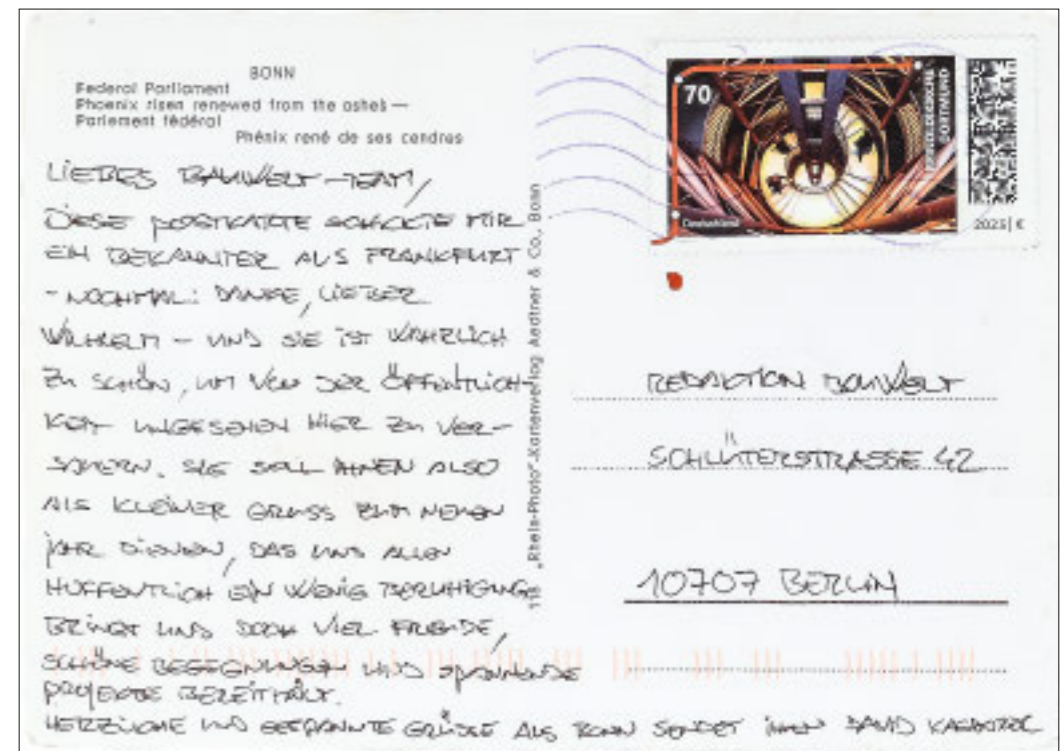 BONN
Federal Parliament
Phoenix risen renewed from the ashes —
Parlement fédéral
Phénix rené de ses cendres
LIEBES BAUWELT-TEAM,
DIESE POSTKARTE SCHICKTE MIR
EIN BEKANNTER AUS FRANKFURT
- NOCHMAL: DANKE, LIEBER
WILHELM - UND SIE IST WAHRLICH
ZU SCHÖN, UM VON DER ÖFFENTLICH-
KEIT UNGESEHEN HIER ZU VER-
SAUERN. SIE SOLL IHNEN ALSO
ALS KLEINER GRUSS ZUM NEUEN
JAHR DIENEN, DAS UNS ALLEN
HOFFENTLICH EIN WENIG BERUHIGUNG
BRINGT UND DOCH VIEL FREUDE,
SCHÖNE BEGEGNUNGEN UND SPANNENDE
PROJEKTE BEREITHÄLT.
HERZLICHE UND GESPANNTE GRÜSSE AUS BONN SENDET IHNEN DAVID
118 „Rhein-Photo"-Kartenverlag Aedtner & Co., Bonn
70
Deutschland
DORTMUND
2023 | €
REDAKTION BAUWELT
SCHLÜTERSTRASSE 42
10707 BERLIN